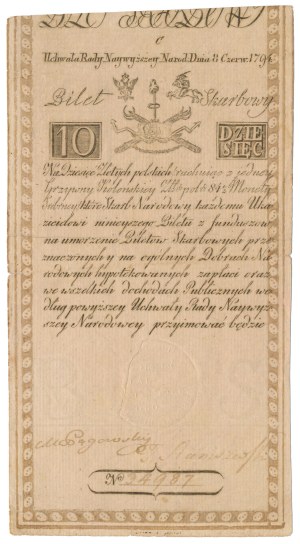 Uchwała Rady Naywyzszey Narod. Dnia 8 Czerw. 1794
Bilet Skarbowy
10
DZIE
SIĘC
Na Dziesięc Złotych polskich rachuiąc z jedney
Grzywny Kolońskiey Złło pol: 84½ Monetą
każdemu Uka
zicielowi ninieyszego Biletu z funduszow
na umorzenie Biletow Skarbowych prze
znaczonych na ogolnych Dobrach Na
rodowych hypotekowanych zapłaci oraz
we wszelkich dochodach Publicznych we
dług powyższey Uchwały Rady Naywyż
szey Narodowey przyimować będzie
No 24987